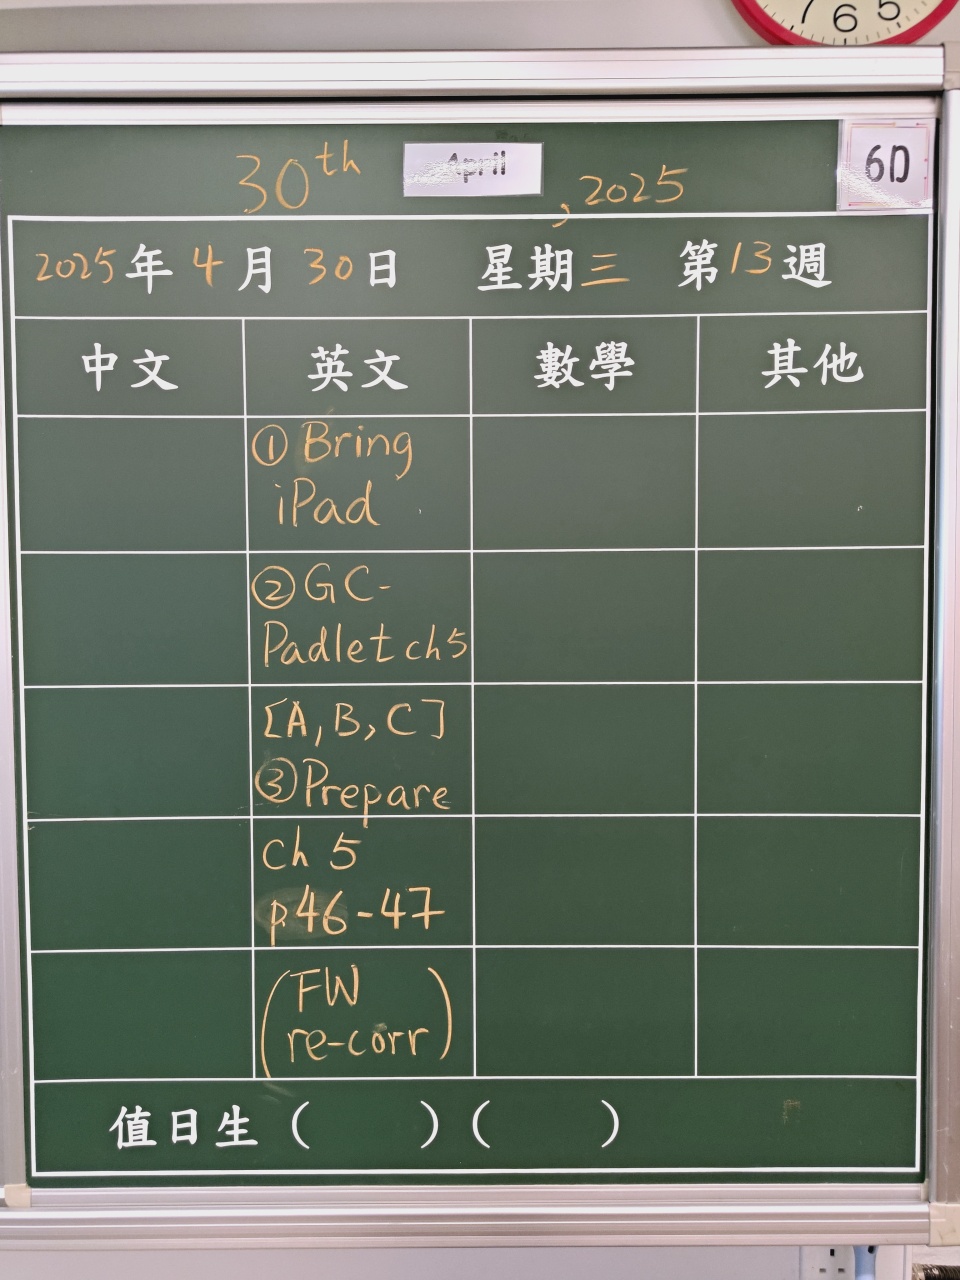 7 6 5
30th April, 2025
6D
2025年4月30日 星期三 第13週
中文 英文 數學 其他
① Bring
iPad
② GC-
Padlet ch5
[A, B, C]
③ Prepare
Ch 5
p46-47
(FW
re-corr)
值日生 ( ) ( )